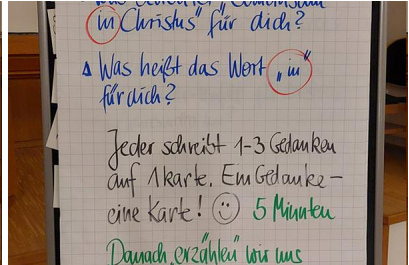 in Christus" für dich?
Was heißt das Wort „in"
für dich?
Jeder schreibt 1-3 Gedanken
auf 1 Karte. Ein Gedanke -
eine Karte! 5 Minuten
Danach „erzählen" wir uns